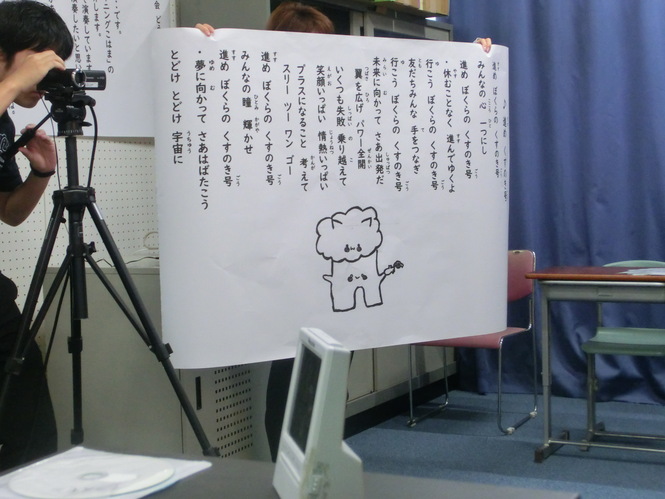 ♪ 進め くすのき号
進め ぼくらの くすのき号
みんなの心 一つにし
進め ぼくらの くすのき号
・休むことなく 進んでゆくよ
行こう ぼくらの くすのき号
友だちみんな 手をつなぎ
行こう ぼくらの くすのき号
未来に向かって さあ出発だ
翼を広げ パワー全開
いくつも失敗 乗り越えて
笑顔いっぱい 情熱いっぱい
プラスになること 考えて
スリー ツー ワン ゴー
進め ぼくらの くすのき号
みんなの瞳 輝かせ
進め ぼくらの くすのき号
・夢に向かって さあはばたこう
とどけ とどけ 宇宙に
です。